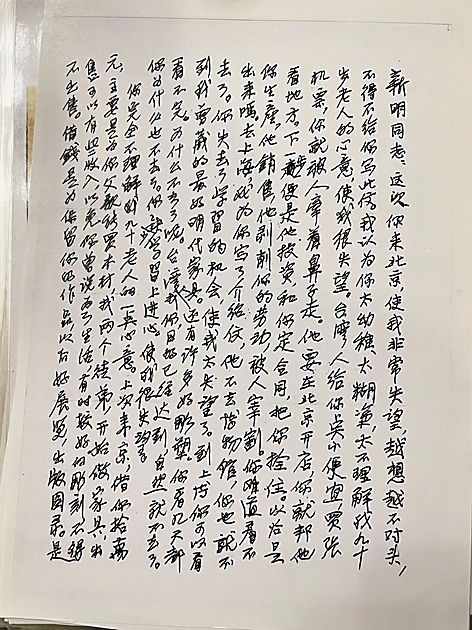 新明同志：这次你来北京，使我非常失望，越想越不对头，
不得不给你写此信。我认为你太幼稚，太糊涂，太不理解我九十
岁老人的心意，使我很失望。台湾人给你吴小便宜，买张
机票，你就被人牵着鼻子走，他要在北京开店，你就帮他
看地方，下一便是他投资和你定合同，把你拴住。以后是
你生产，他销售，他剥削你的劳动，被人宰割。你难道看不
出来吗？去上海我为你写了介绍信，他不去博物馆，你也就不
去了。你失去了学习的机会，使我太失望了。到上海你可以看
到我剪藏的最好明代家具。还有许多好雕塑。你看几天都
看不完。为什么不去了呢。台湾，自然就不去了。
你为什么也不去了。你学习上进心，使我很失望了
你完全不理解我九十老人的一点心意。上次来京，借你拾万
元，主要是为你父亲买木材，我两个徒弟，开始做家具，出
售，可以有些收入，以免你曾说为了生活，有时较好的雕刻不得
不出售。借钱是为保留你的作品，以后好展览，出版图录。是